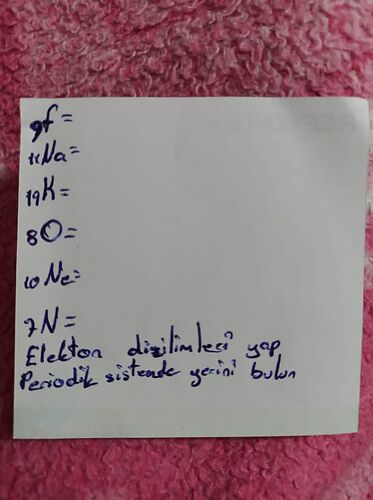 9f=
11Na=
19K=
8O=
10Ne=
7N=
Elekton dizilimleri yap
Periodik sistemde yerini bulun